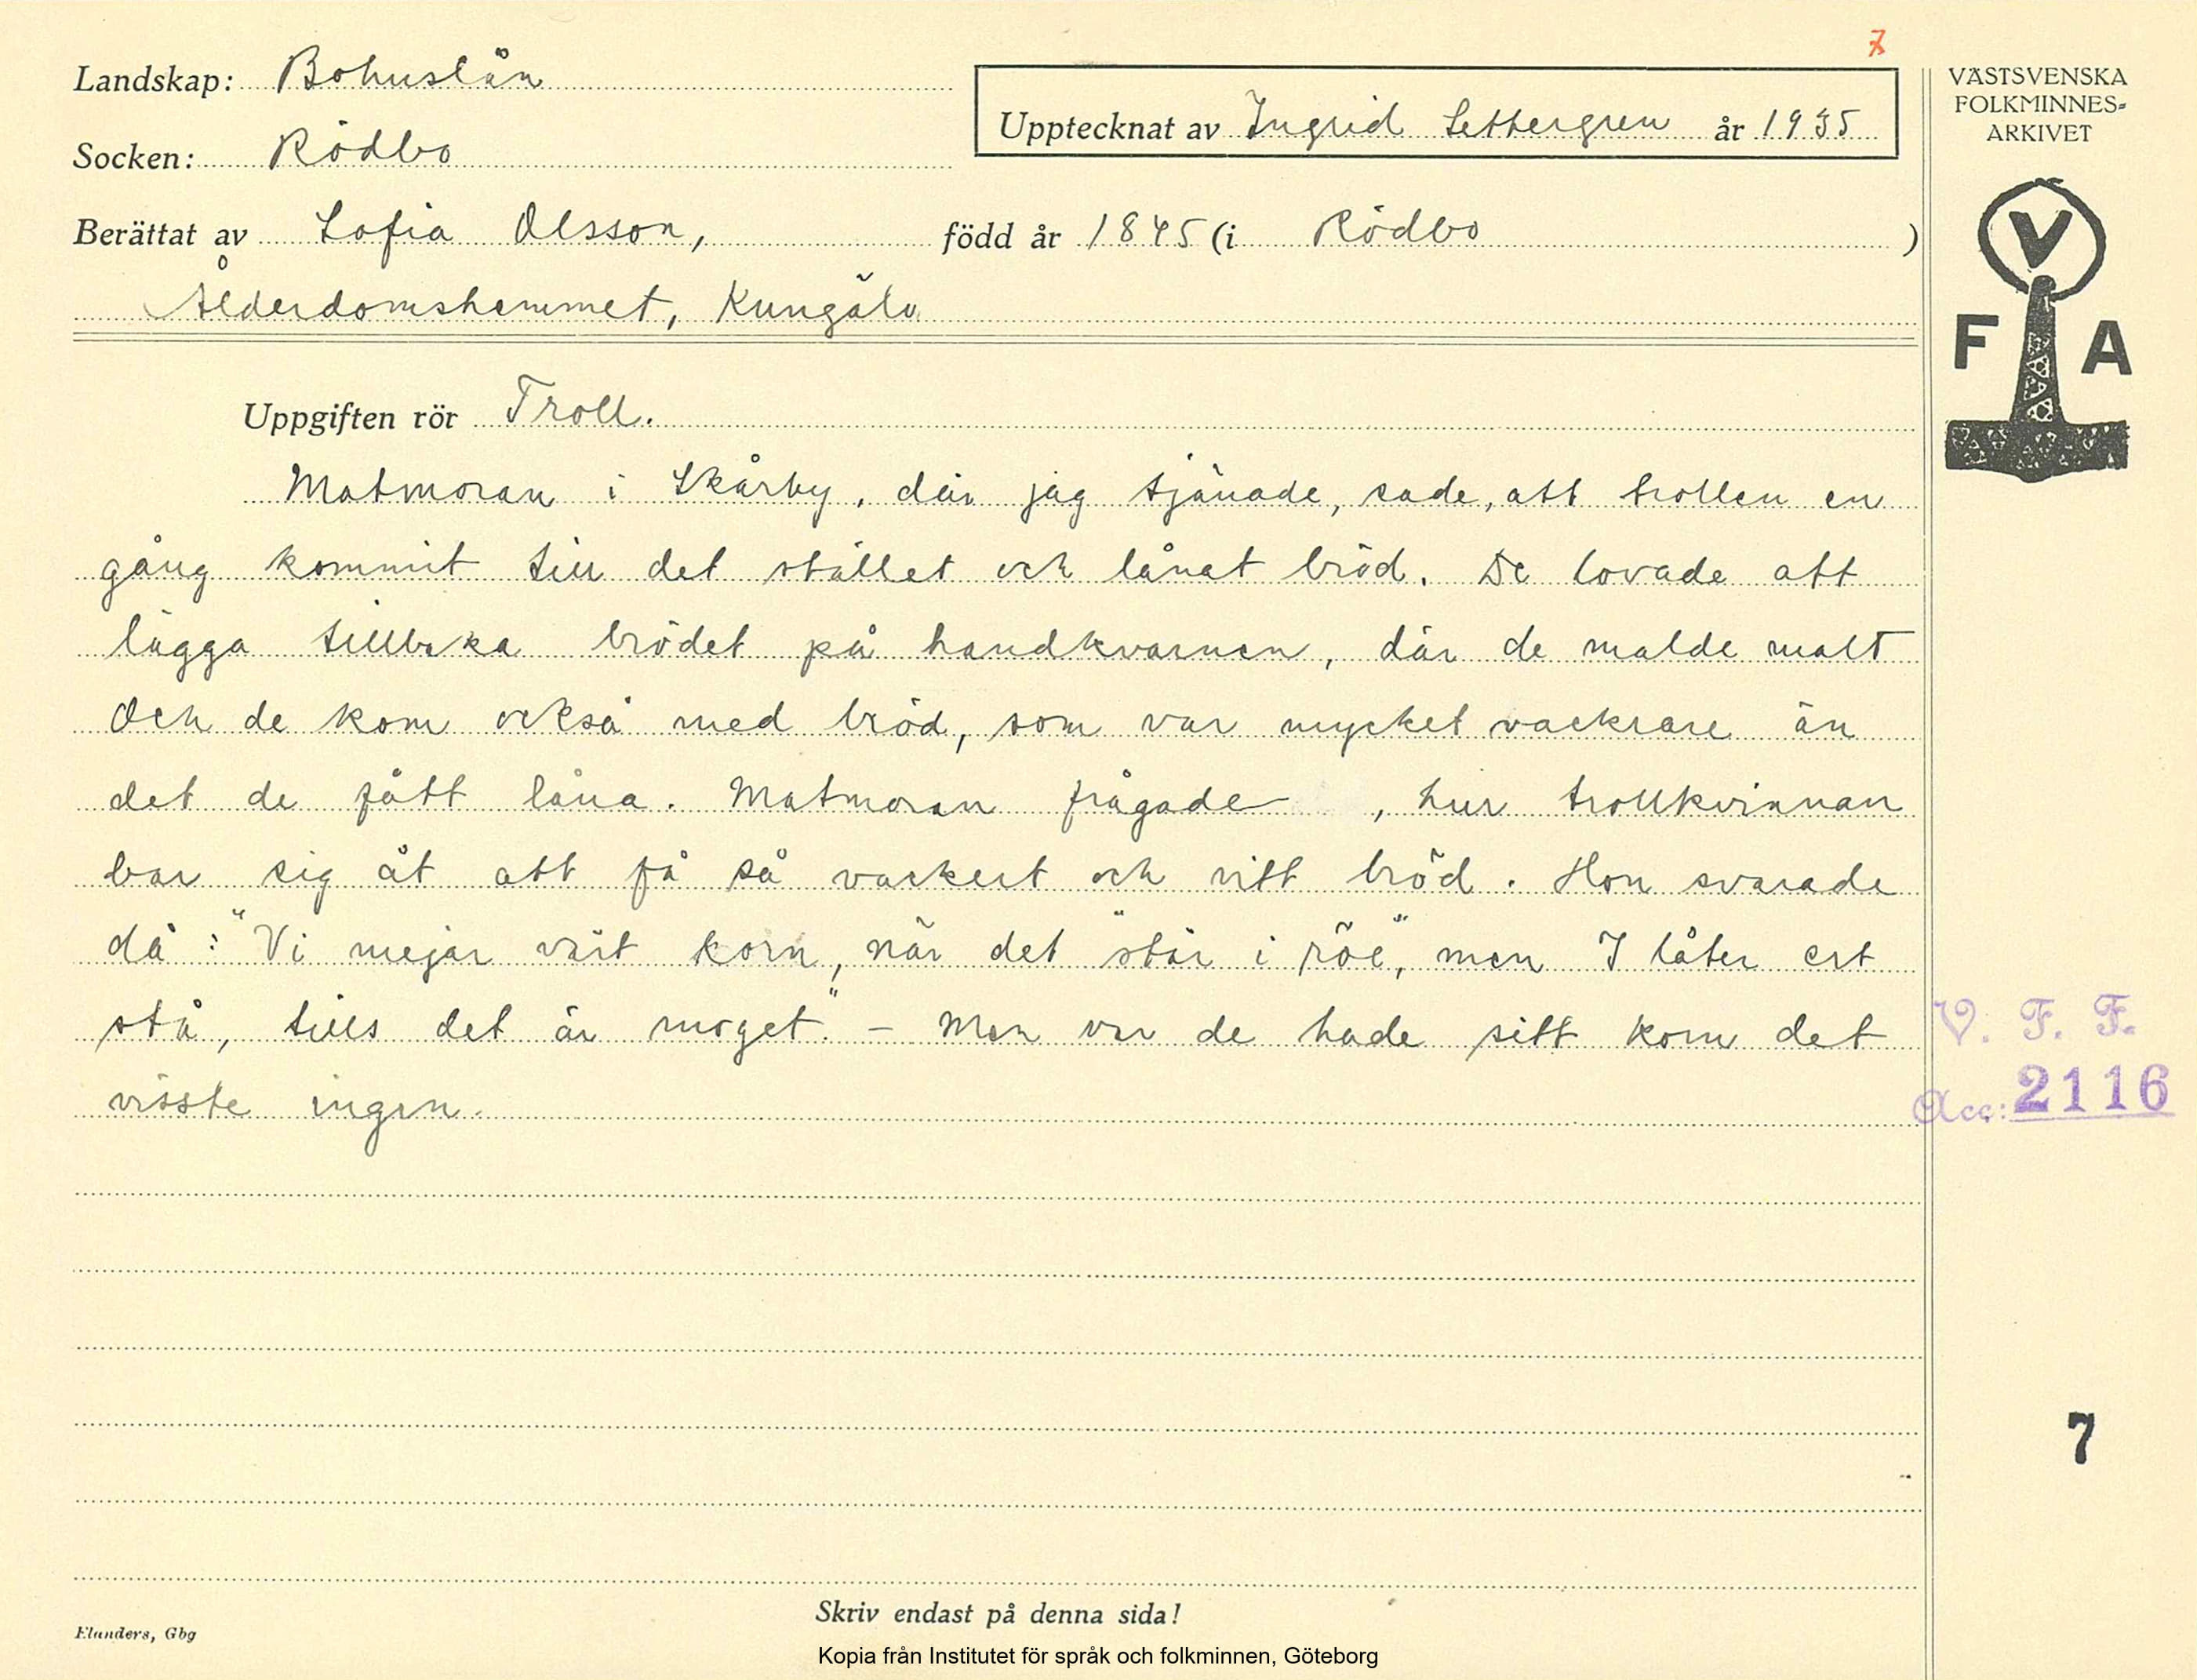 7
Landskap: Bohuslän
Socken: Rödbo
Upptecknat av Ingrid Settergren år 1935
Berättat av Sofia Olsson, född år 1845 (i Rödbo )
Ålderdomshemmet, Kungälv
VÄSTSVENSKA
FOLKMINNES=
ARKIVET
V
F A
Uppgiften rör Troll.
Matmoran i Skårby, där jag tjänade, sade, att trollen en
gång kommit till det stället och lånat bröd. De lovade att
lägga tillbaka brödet på handkvarnen, där de malde malt
Och de kom också med bröd, som var mycket vackrare än
det de fått låna. Matmoran frågade , hur trollkvinnan
bar sig åt att få så vackert och vitt bröd. Hon svarade
då: "Vi mejar vårt korn, när det "står i röe", men I låter ert
stå, tills det är moget." – Men var de hade sitt korn det
visste ingen.
V. F. F.
Acc: 2116
7
Skriv endast på denna sida!
Elanders, Gbg
Kopia från Institutet för språk och folkminnen, Göteborg